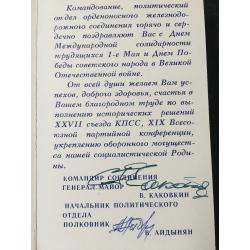 Командование, политический
отдел орденоносного железнодо-
рожного соединения горячо и сер-
дечно поздравляют Вас с Днем
Международной солидарности
трудящихся 1-е Мая и Днем По-
беды советского народа в Великой
Отечественной войне.
От всей души желаем Вам ус-
пехов, доброго здоровья, счастья в
Вашем благородном труде по вы-
полнению исторических решений
XXVII съезда КПСС, XIX Всесо-
юзной партийной конференции,
укреплению оборонного могущест-
ва нашей социалистической Роди-
ны.
КОМАНДИР СОЕДИНЕНИЯ
ГЕНЕРАЛ-МАЙОР
В. КАКОВКИН
НАЧАЛЬНИК ПОЛИТИЧЕСКОГО
ОТДЕЛА
ПОЛКОВНИК
АЙДЫНЯН